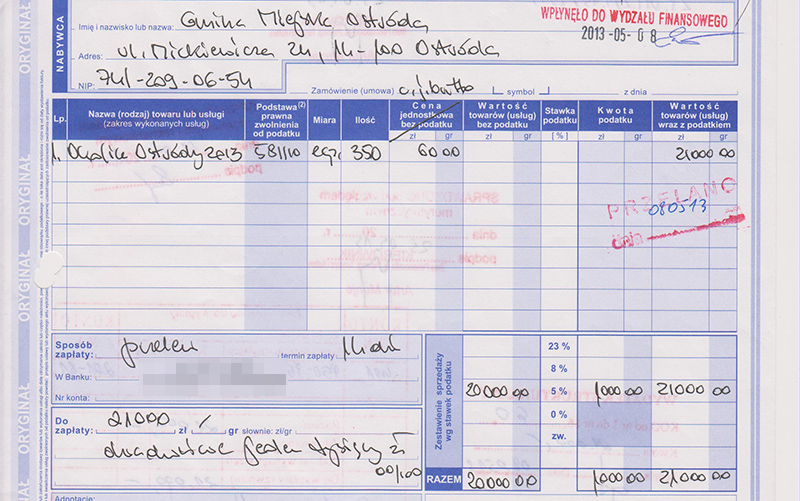 ORYGINAŁ ORYGINAŁ ORYGINAŁ ORYGINAŁ ORYGINAŁ
NABYWCA
Imię i nazwisko lub nazwa: Gmina Miejska Ostróda
WPŁYNĘŁO DO WYDZIAŁU FINANSOWEGO
2013 -05- 0 8
Adres: ul. Mickiewicza 24, 14-100 Ostróda
NIP: 741-209-06-54
Zamówienie (umowa) symbol z dnia
Lp. Nazwa (rodzaj) towaru lub usługi (zakres wykonanych usług) Podstawa(2) prawna zwolnienia od podatku Miara Ilość Cena jednostkowa bez podatku zł gr Wartość towarów (usług) bez podatku zł gr Stawka podatku [ % ] Kwota podatku zł gr Wartość towarów (usług) wraz z podatkiem zł gr
1. Okolice Ostródy 2013 581110 egz. 350 60 00 21000 00
PRZELANO
dnia 080513
Sposób zapłaty: przelew termin zapłaty 14 dni
W Banku:
Nr konta:
Do zapłaty: 21000 zł / gr słownie: zł/gr
dwadzieścia jeden tysięcy zł
00/100
Zestawienie sprzedaży wg stawek podatku
23 %
8 %
20000 00 5 % 1000 00 21000 00
0 %
zw.
RAZEM 20000 00 1000 00 21000 00
Adnotacje: